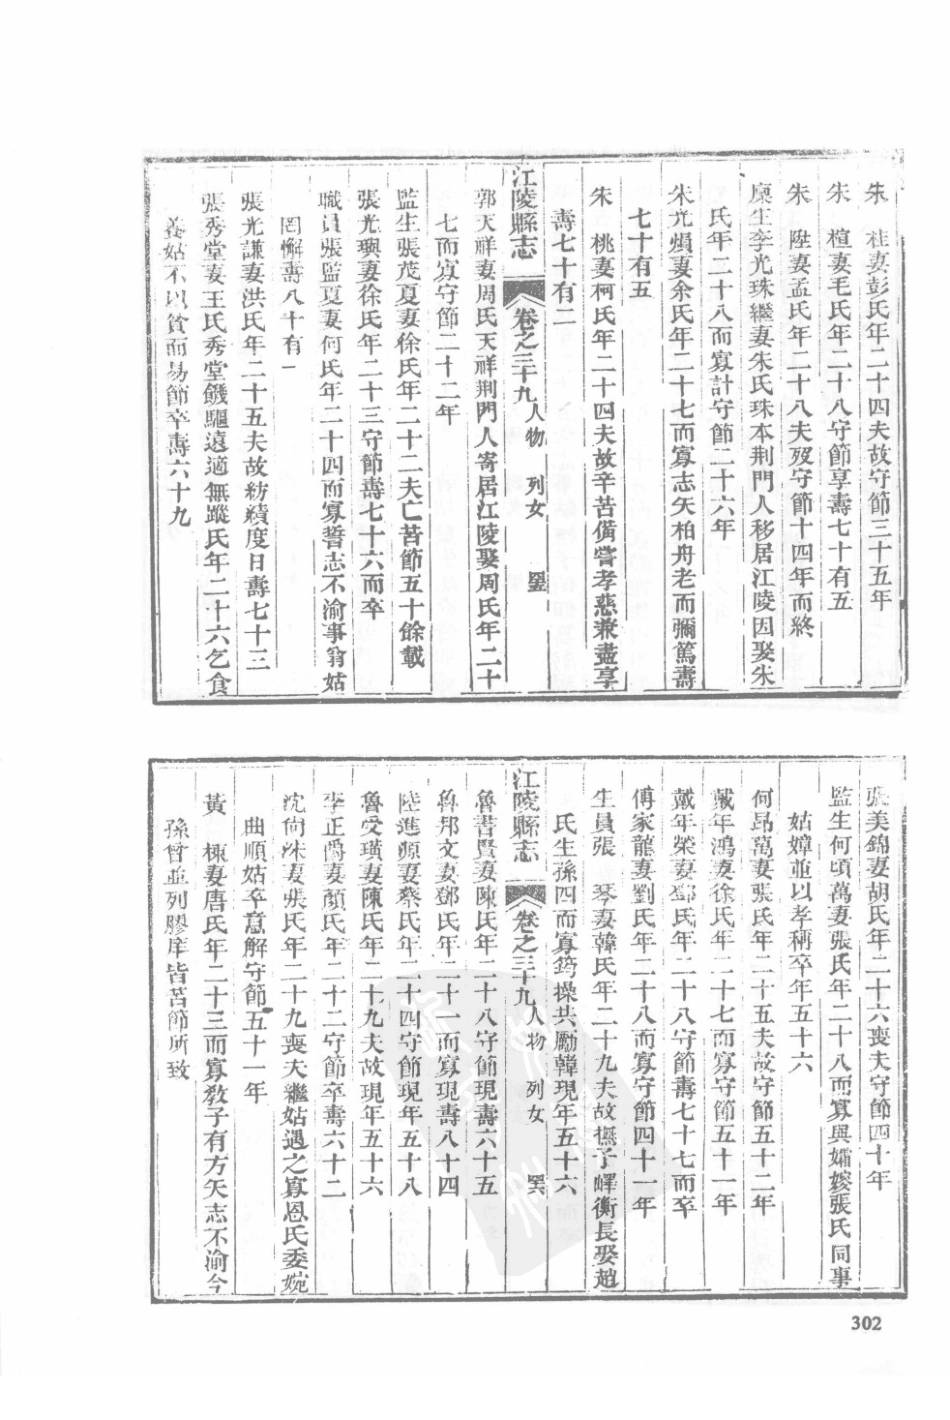 朱　桂妻彭氏年二十四夫故守節三十五年
朱　楦妻毛氏年二十八守節享壽七十有五
朱　陞妻孟氏年二十八夫歿守節十四年而終
廩生李光珠繼妻朱氏珠本荆門人移居江陵因娶朱
氏年二十八而寡計守節二十六年
朱光熉妻余氏年二十七而寡志矢柏舟老而彌篤壽
七十有五
朱　桃妻柯氏年二十四夫故辛苦備嘗孝慈兼盡享
壽七十有二
江陵縣志　卷之三十九　人物　列女
郭天祥妻周氏天祥荆門人寄居江陵娶周氏年二十
七而寡守節二十二年
監生張茂夏妻徐氏年二十二夫亡苦節五十餘載
張光璵妻徐氏年二十三守節壽七十六而卒
職員張監夏妻何氏年二十四而寡誓志不渝事翁姑
罔懈壽八十有一
張光謙妻洪氏年二十五夫故紡績度日壽七十三
張秀堂妻王氏秀堂饑驅遠適無蹤氏年二十六乞食
養姑不以貧而易節卒壽六十九
張美錦妻胡氏年二十六喪夫守節四十年
監生何頃萬妻張氏年二十八而寡與孀嫂張氏同事
姑嫜並以孝稱卒年五十六
何昂萬妻張氏年二十五夫故守節五十二年
戴年鴻妻徐氏年二十七而寡守節五十一年
戴年榮妻鄧氏年二十八守節壽七十七而卒
傅家龍妻劉氏年二十八而寡守節四十一年
生員張　琴妻韓氏年二十九夫故撫子嶧衡長娶趙
氏生孫四而寡筠操共勵韓現年五十六
江陵縣志　卷之三十九　人物　列女
魯書賢妻陳氏年二十八守節現壽六十五
魯邦文妻鄧氏年二十一而寡現壽八十四
陸進源妻蔡氏年二十四守節現年五十八
魯受璜妻陳氏年二十九夫故現年五十六
李正爵妻顏氏年二十二守節卒壽六十二
沈尙洙妻張氏年二十九喪夫繼姑遇之寡恩氏委婉
曲順姑卒意解守節五十一年
黃　棟妻唐氏年二十三而寡教子有方矢志不渝今
孫曾並列膠庠皆苦節所致
302